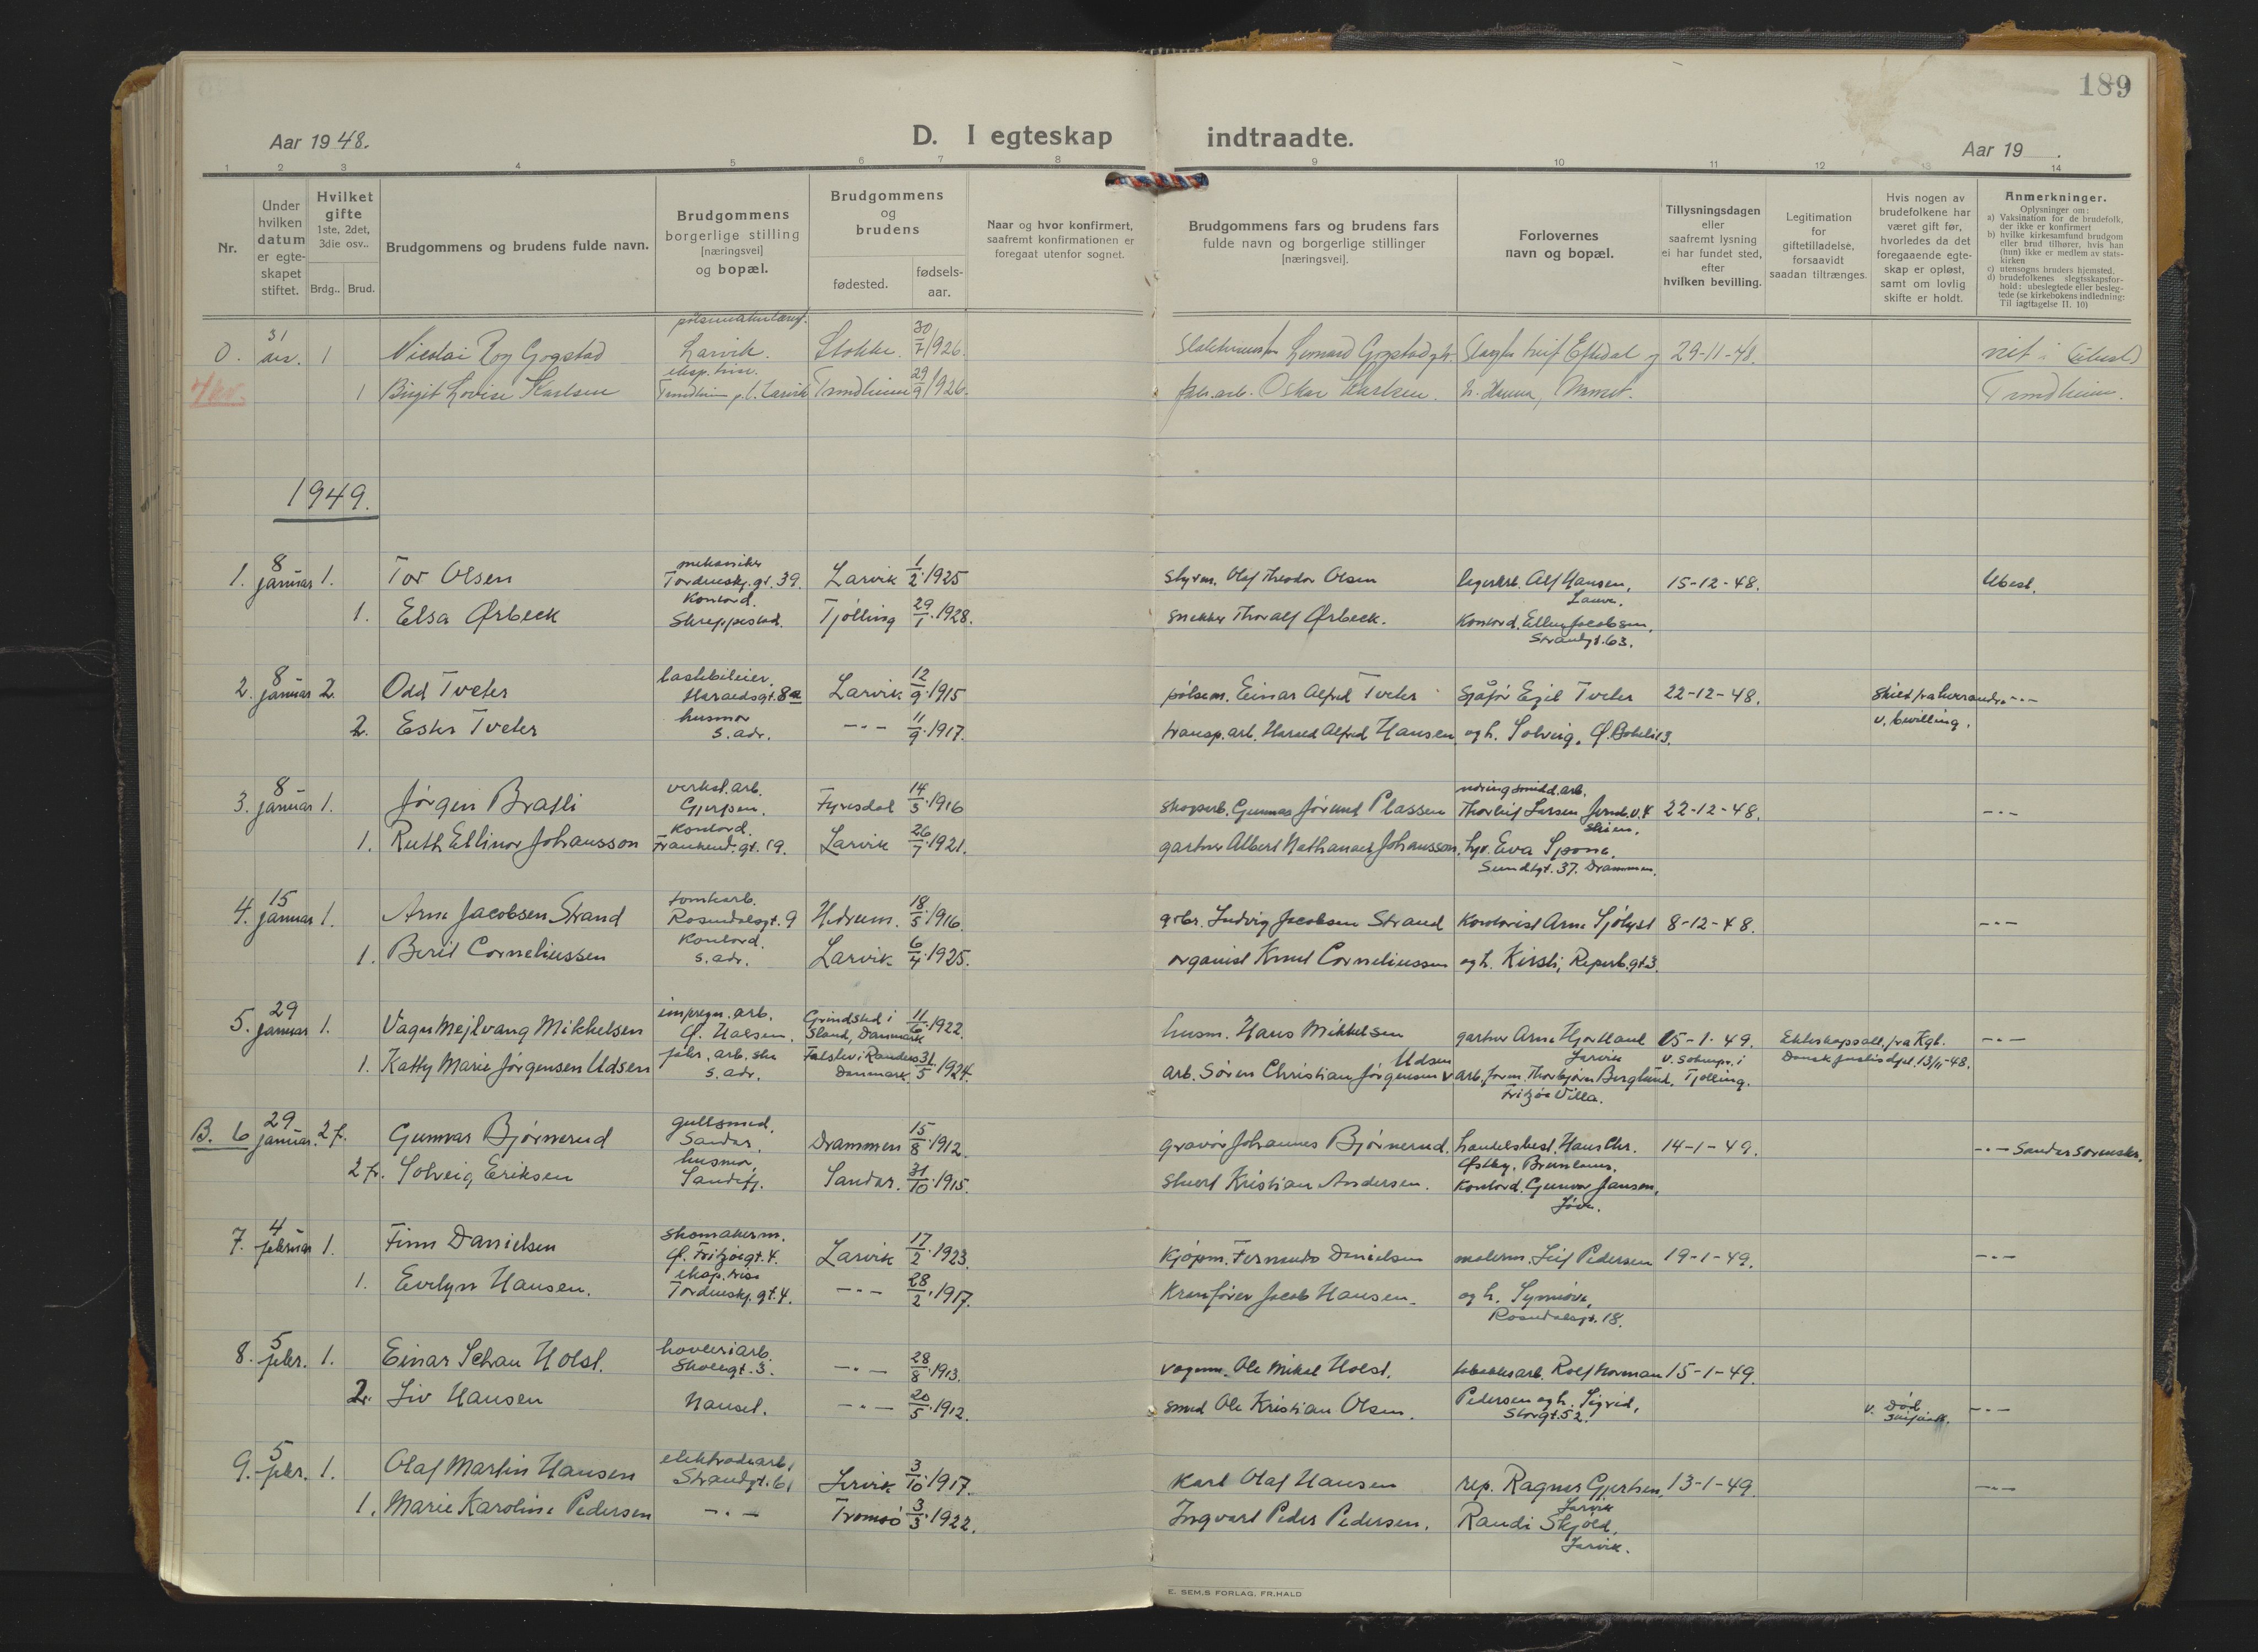 189
Aar 1948.
D. I egteskap indtraadte.
Aar 19 .
1 2 3 4 5 6 7 8 9 10 11 12 13 14
Nr.
Under hvilken datum er egteskapet stiftet.
Hvilket gifte 1ste, 2det, 3die osv..
Brdg.. Brud.
Brudgommens og brudens fulde navn.
Brudgommens borgerlige stilling [næringsvei] og bopæl.
Brudgommens og brudens
fødested.
fødsels-aar.
Naar og hvor konfirmert, saafremt konfirmationen er foregaat utenfor sognet.
Brudgommens fars og brudens fars fulde navn og borgerlige stillinger [næringsvei].
Forlovernes navn og bopæl.
Tillysningsdagen eller saafremt lysning ei har fundet sted, efter hvilken bevilling.
Legitimation for giftetilladelse, forsaavidt saadan tiltrænges.
Hvis nogen av brudefolkene har været gift før, hvorledes da det foregaaende egteskap er opløst, samt om lovlig skifte er holdt.
Anmerkninger.
Oplysninger om:
a) Vaksination for de brudefolk, der ikke er konfirmert
b) hvilke kirkesamfund brudgom eller brud tilhører, hvis han (hun) ikke er medlem av statskirken
c) utensogns bruders hjemsted.
d) brudefolkenes slegtsskapsforhold: ubeslegtede eller beslegtede (se kirkebokens indledning: Til iagttagelse II. 10)
0. 31 des. 1 Nicolai Roy Gogstad Larvik. Stokke. 30/7 1926. Leonard Gogstad 29-11-48.
1 Birgit Lovise Karlsen eksp. trise Trondheim p.t. Larvik Trondheim 29/9 1926. fabr.arb. Oskar Karlsen. Trondheim.
1949.
1. 8 januar 1. Tor Olsen mekaniker Tordenskj.gt. 39. Larvik 1/2 1925 styrm. Olaf Theodor Olsen Alf Hansen, 15-12-48. Ubesl.
1. Elsa Ørbeck Kontord. Skreppestad. Tjølling 29/1 1928. snekker Thoralf Ørbeck. Kontord. Ellen Jacobsen, Strandgt. 63.
2. 8 januar 2. Odd Tveter lastebileier, Haraldsgt. 8a Larvik 12/9 1915 pølsem. Einar Alfred Tveter Sjåfør Egil Tveter 22-12-48. Skilt fra hverandre -"-
2. Ester Tveter husmor s. adr. -"- 11/9 1917. transp. arb. Harald Alfred Hansen og h. Solveig, v. bevilling.
3. 8 januar 1. Jørgen Bratli verkst. arb. Gjerpen. Fyresdal 14/3 1916 skogarb. Gunnar Jørund Plassen Thorleif Larsen 22-12-48. -"-
Skien.
1. Ruth Ellinor Johansson Kontord. Larvik 26/7 1921. gartner Albert Nathanael Johansson. Eva Spone, Sundtgt. 37. Drammen.
4. 15 januar 1. Arne Jacobsen Strand tomtearb. Rosendalsgt. 9 Hedrum. 18/5 1916. gbr. Ludvig Jacobsen Strand Kontorist Arne Sjølyst 8-12-48. -"-
1. Berit Corneliussen Kontord. s. adr. Larvik 6/4 1925. organist Knut Corneliussen og h. Kirsti, Reperb.gt 3.
5. 29 januar 1. Vagn Mejlvang Mikkelsen impregn. arb. Ø. Halsen. Grindsted i Danmark 11/6 1922. husm. Hans Mikkelsen gartner Arne 15-1-49. Ekteskapsatt. fra Kgl. -"-
Larvik
1. Katty Marie Jørgensen Udsen fabr. arb. s. adr. Randers Danmark. 31/5 1924. arb. Søren Christian Jørgensen Udsen arb. form. Thorbjørn Berglund, Tjølling. Dansk justisdept. 13/11-48.
Fritzøe Villa.
B. 6 29 januar. 2 f. Gunnar Bjørnerud gullsmed. Sandar. Drammen 15/8 1912. gravør Johannes Bjørnerud. handelsbest. Hans Chr. Østby, Brunlanes. 14-1-49. -"- Sandar sorenskr.
2 fr. Solveig Eriksen husmor, Sandefj. Sandar. 31/10 1915. stuert Kristian Andersen. Kontord. Gunvor Jansen,
7. 4 februar 1. Finn Danielsen skomakerm. Ø. Fritzøegt. 4. Larvik 17/2 1923. Kjøpm. Fernando Danielsen malerm. Leif Pedersen 19-1-49. -"-
1. Evelyn Hansen. eksp. trise Tordenskj. gt. 4. -"- 28/2 1917. Kranfører Jacob Hansen. og h. Synnøve, Rosendalsgt. 18.
8. 5 febr. 1. Einar Schau Holst. høveleriarb. Skolegt. 3. -"- 28/8 1913. vognm. Ole Mikal Holst. tobakksarb. Rolf Norman 15-1-49.
2. Liv Hansen Nanset. -"- 20/5 1912. smed Ole Kristian Olsen. Pedersen og h. Sigrid, Storgt. 52. v. Død -"-
9. 5 febr. 1. Olaf Martin Hansen elektrodearb. Strandgt. 61 Larvik 3/10 1917. Karl Olaf Hansen rep. Ragnar Gjertsen, 13-1-49. -"-
Larvik
1. Marie Karoline Pedersen -"- Tromsø 3/3 1922. Ingvart Peder Pedersen. Randi Skjold, Larvik.
E. SEM.S FORLAG, FR.HALD